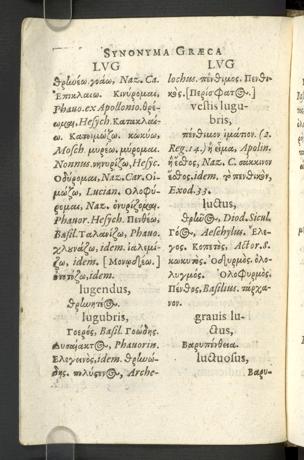 SYNONYMA GRÆCA
LVG
θρηνέω, γοάω, Naz. Ca.
Επικλαίω. Κινύρομαι,
Phauo. ex Apollonio. θρέ-
ομαι, Hesych. Κατακλαί-
ω. Κατοιμώζω. κωκύω,
Mosch. μυρέω, μύρομαι.
Nonnus. νηνυρίζω, Hesyc.
Οδύρομαι, Naz. Car. Οἰ-
μώζω, Lucian. Ολοφύ-
ρομαι, Naz. ὀνυρίζομαι,
Phauor. Hesych. Πενθέω,
Basil. Ταλανίζω, Phauo.
idem. ἰαλεμί-
ζω, idem. [Μονῳδέω.]
idem.
lugendus,
θρηνητέος.
lugubris,
Γοερός, Basil. Γοώδης.
Phauorin.
Ελεγεινὸς, idem. θρηνώ-
δης. Arche-
LVG
lochus. πένθιμος. Πενθι-
κός. [Περισφατος.]
vestis lugu-
bris,
πένθιμον ἱμάτιον. (2.
Reg. 14.) ἢ εἷμα, Apolin.
ἢ ἔσθος, Naz. C. σάκκινον
ἔσθος, idem. πενθικὸν,
Exod. 33.
luctus,
θρῆνος, Diod. Sicul.
Γόος, Aeschylus. Ελε-
γος. Κοπετὸς, Actor. 8.
κωκυτὸς. Οδυρμὸς. ὀλο-
λυγμὸς. Ολοφυρμὸς.
Πένθος, Basilius. πάρχα-
νον.
grauis lu-
ctus,
Βαρυπένθεια.
luctuosus,
Βαρυ-